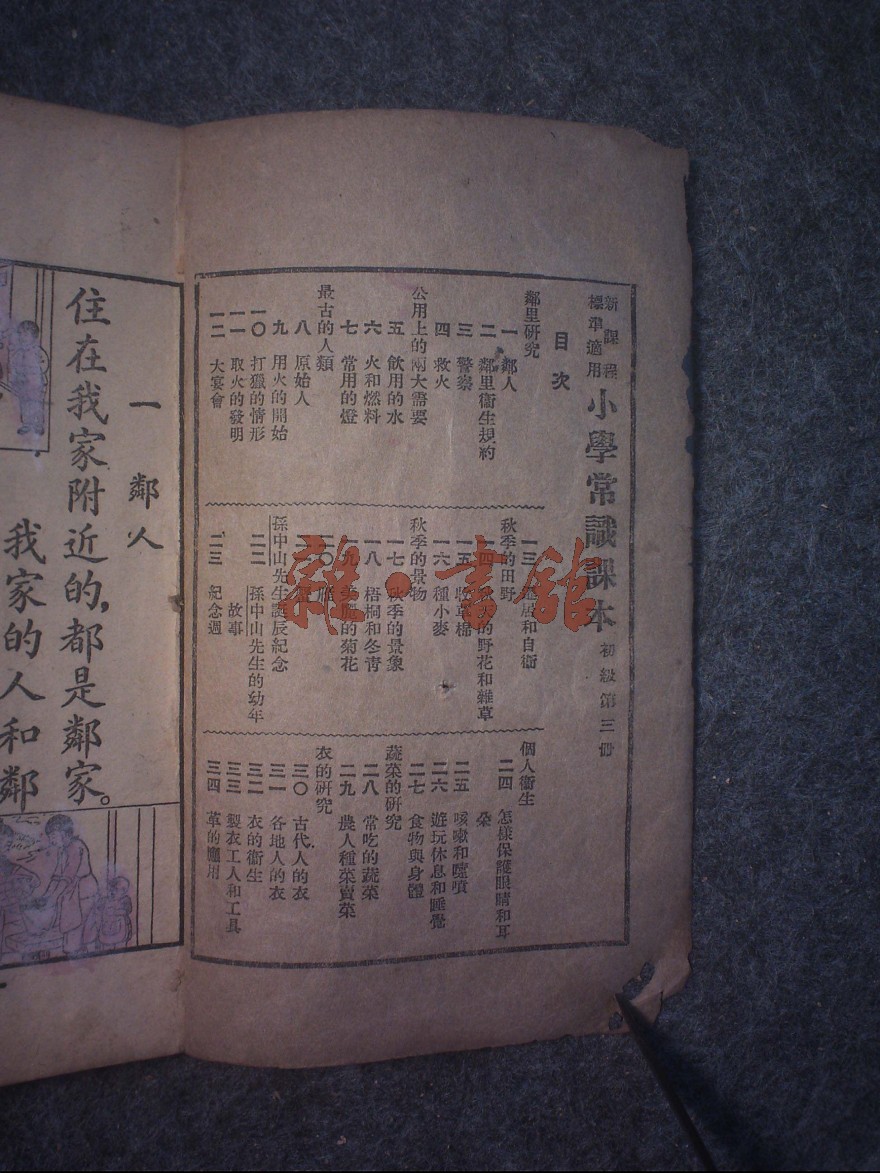 新課程標準適用
小學常識課本
初級第三冊
目次
鄰里研究
一 鄰人
二 鄰里衞生規約
三 警察
四 救火
公用上的兩大需要
五 飲用的水
六 火和燃料
七 常用的燈
最古的人類
八 原始人
九 用火的開始
一〇 打獵的情形
一一 取火的發明
一二 大宴會
一三 居和自衞
秋季的田野
一四 秋天的野花和雜草
一五 收草棉
一六 種小麥
秋季的景物
一七 秋季的景象
一八 梧桐和冬青
一九 美麗的菊花
二〇
二一
孫中山先生誕辰紀念
二二 孫中山先生的幼年故事
二三 紀念週
個人衞生
二四 怎樣保護眼睛和耳朵
二五 咳嗽和噴嚏
二六 遊玩休息和睡覺
二七 食物與身體
蔬菜的研究
二八 常吃的蔬菜
二九 農人種菜賣菜
衣的研究
三〇 古代人的衣
三一 各地人的衣
三二 衣的衞生
三三 製衣工人和工具
三四 革的應用
雜·書館
一 鄰人
住在我家附近的，都是鄰家。
我家的人和鄰